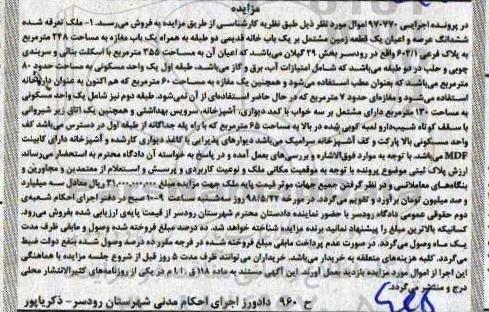 مزایده
در پرونده اجرایی ۹۷۰۷۷۰ اموال مورد نظر ذیل طبق نظریه کارشناسی از طریق مزایده به فروش می‌رسد. ۱- ملک تعرفه شده
ششدانگ عرصه و اعیان یک قطعه زمین مشتمل بر یک باب خانه قدیمی دو طبقه به همراه یک باب مغازه به مساحت ۲۴۸ مترمربع
به پلاک فرعی ۶۰۲/۱ واقع در رودسر بخش ۲۹ گیلان می‌باشد. که اعیان آن به مساحت ۳۵۵ مترمربع با اسکلت بنائی و سربندی
چوبی و حلب در دو طبقه می‌باشد. که شامل امتیازات آب برق و گاز می‌باشد. طبقه اول یک واحد مسکونی به مساحت حدود ۸۰
مترمربع می‌باشد که بعنوان مطب استفاده می‌شود و همچنین یک مغازه به مساحت ۶۰ مترمربع که هم اکنون به عنوان داروخانه
استفاده می‌شود و مغازه‌ای حدود ۷ مترمربع که در حال حاضر استفاده‌ای از آن نمی‌شود. طبقه دوم نیز شامل یک واحد مسکونی
به مساحت ۱۳۰ مترمربع دارای مشتمل بر سه خواب با کمد دیواری، آشپزخانه، سرویس بهداشتی و همچنین یک اتاق زیر شیروانی
با سقف کوتاه شیب‌دار و لمبه کوبی شده در بالا به مساحت ۶۵ مترمربع که با راه پله جداگانه از طبقه اول در دسترس می‌باشد کف
واحد مسکونی بالا پارکت و کف آشپزخانه سرامیک می‌باشد دیوارهای پذیرایی با کاغذ دیواری کار شده و آشپزخانه دارای کابینت
MDF می‌باشد. با توجه به موارد فوق‌الاشاره و بررسی‌های بعمل آمده و در پاسخ به خواسته آن دادگاه محترم به استحضار می‌رساند
ارزش پلاک ثبتی موضوع پرونده با توجه به موقعیت مکانی ملک و نوعیت کاربردی و پرسش و استعلام از معتمدین و مجاورین و
بنگاه‌های معاملاتی و در نظر گرفتن جمیع جهات موثر قیمت پایه ملک جهت مزایده مبلغ ۳۱.۰۰۰.۰۰۰.۰۰۰ ریال معادل سه میلیارد
و صد میلیون تومان برآورد و تقویم می‌گردد. در مورخه ۹۸/۵/۲۲ روز سه‌شنبه ساعت ۹-۱۰ صبح در دفتر اجرای احکام شعبه‌ی
دوم حقوقی عمومی دادگاه رودسر با حضور نماینده دادستان محترم شهرستان رودسر از قیمت پایه‌ی ارزیابی شده بفروش می‌رود.
کسانیکه بالاترین مبلغ را پیشنهاد نمایند برنده مزایده شناخته خواهد شد. ده درصد مبلغ فروخته شده وصول و مابقی ظرف مدت
یک ماه وصول می‌گردد. در صورت عدم پرداخت مابقی مبلغ فروخته شده در فرجه مقرر ده درصد وصول شده بنفع دولت ضبط
می‌گردد. کلیه هزینه‌های متعلقه به خریدار می‌باشد. خریداران می‌توانند ظرف مدت ۵ روز قبل از شروع جلسه مزایده با هماهنگی
این اجرا از اموال مورد مزایده بازدید بعمل آورند. این آگهی مستند به ماده ۱۱۸ ق.ا.ا.م در یکی از روزنامه‌های کثیرالانتشار محلی
درج و منتشر می‌گردد.
ح ۹۶۰ دادورز اجرای احکام مدنی شهرستان رودسر- ذکریاپور